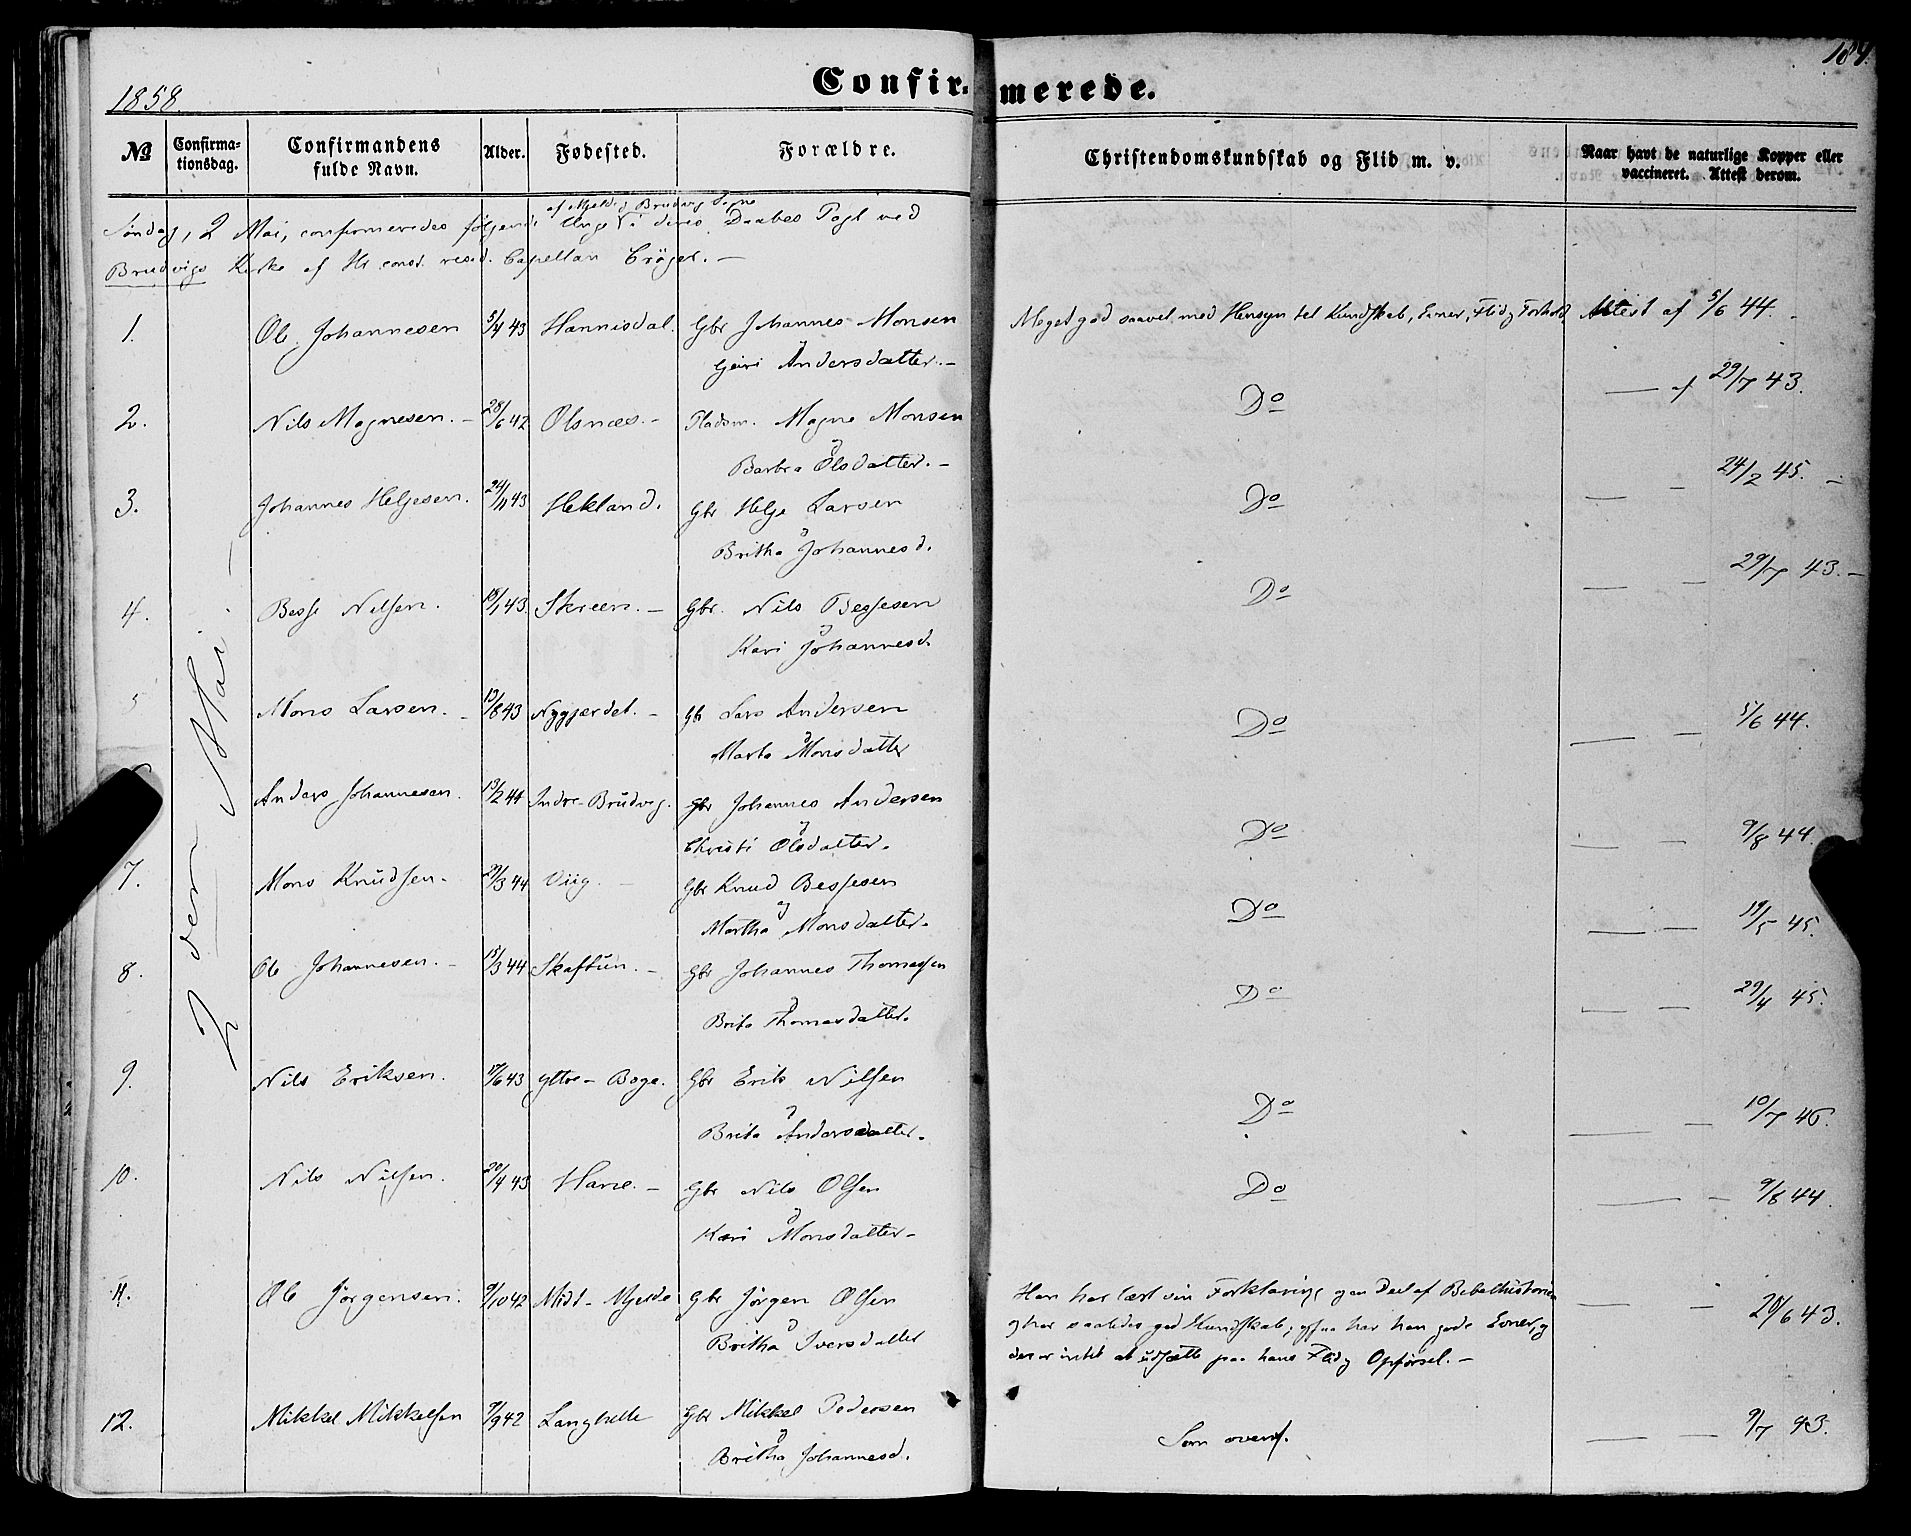 184.
1858.
Confirmerede.
No
Confirmationsdag.
Confirmandens fulde Navn.
Alder.
Fødested.
Forældre.
Christendomskundskab og Flid m. v.
Naar havt de naturlige Kopper eller vaccineret. Attest derom.
af Mjelde og Brudvig Sogne
Søndag, 2 Mai, confirmeredes følgende Unge i deres Daabes Pagt ved
Brudvigs Kirke af Hr const. resid. Capellan Crøger. —
2 den Mai —
1. Ole Johannesen 5/4 43 Hannisdal. Gbr Johannes Monsen Meget god saavel med Hensyn til Kundskab, Evner, Flid og Forhold Attest af 5/6 44. -
og Geiri Andersdatter. -
2. Nils Magnesen. - 28/6 42 Olsnæs. - Pladsm. Magne Monsen Do — af 29/7 43.
og Barbra Olsdatter. -
3. Johannes Helgesen. 24/11 43 Hekland. Gbr Helge Larsen Do — - 24/2 45. -
og Britha Johannesd.
4. Besse Nilsen. 18/1 43 Skreen. - Gbr. Nils Bessesen Do — - 29/7 43. -
og Kari Johannesd.
5 Mons Larsen. - 13/8 43 Nygjerdet. - Gbr Lars Andersen Do — - 5/6 44.
og Marta Monsdatter
Anders Johannesen. 13/2 44 Indre-Brudvig. Gbr Johannes Andersen Do — - 9/8 44.
og Christi Olsdatter.
7. Mons Knudsen. 29/3 44 Viig. - Gbr Knud Bessesen Do — - 19/5 45.
og Martha Monsdatter.
8. Ole Johannesen. - 15/3 44 Skaftun. - Gbr Johannes Thomassen Do — - 29/4 45.
og Brita Thomasdatter.
9. Nils Eriksen. 17/6 43 Yttre-Boge. Gbr Erik Nilsen Do — - 10/7 45.
og Brita Andersdatter.
10. Nils Nilsen. 20/4 43 Hane. - Gbr Nils Olsen Do — - 9/8 44.
og Kari Monsdatter -
11. Ole Jørgensen. 9/10 42 Midt-Mjelde Gbr Jørgen Olsen Han har lært sin Forklaring og en Deel af Bibelhistorien — - 28/6 43.
og Britha Iversdatter og har saaledes god Kundskab; ogsaa har han gode Evner, og
der er intet at udsætte paa hans Flid og Opførsel. -
12. Mikkel Mikkelsen 7/9 42 Langhelle Gbr Mikkel Pedersen Som ovenf. — - 9/7 43.
og Britha Johannesd.